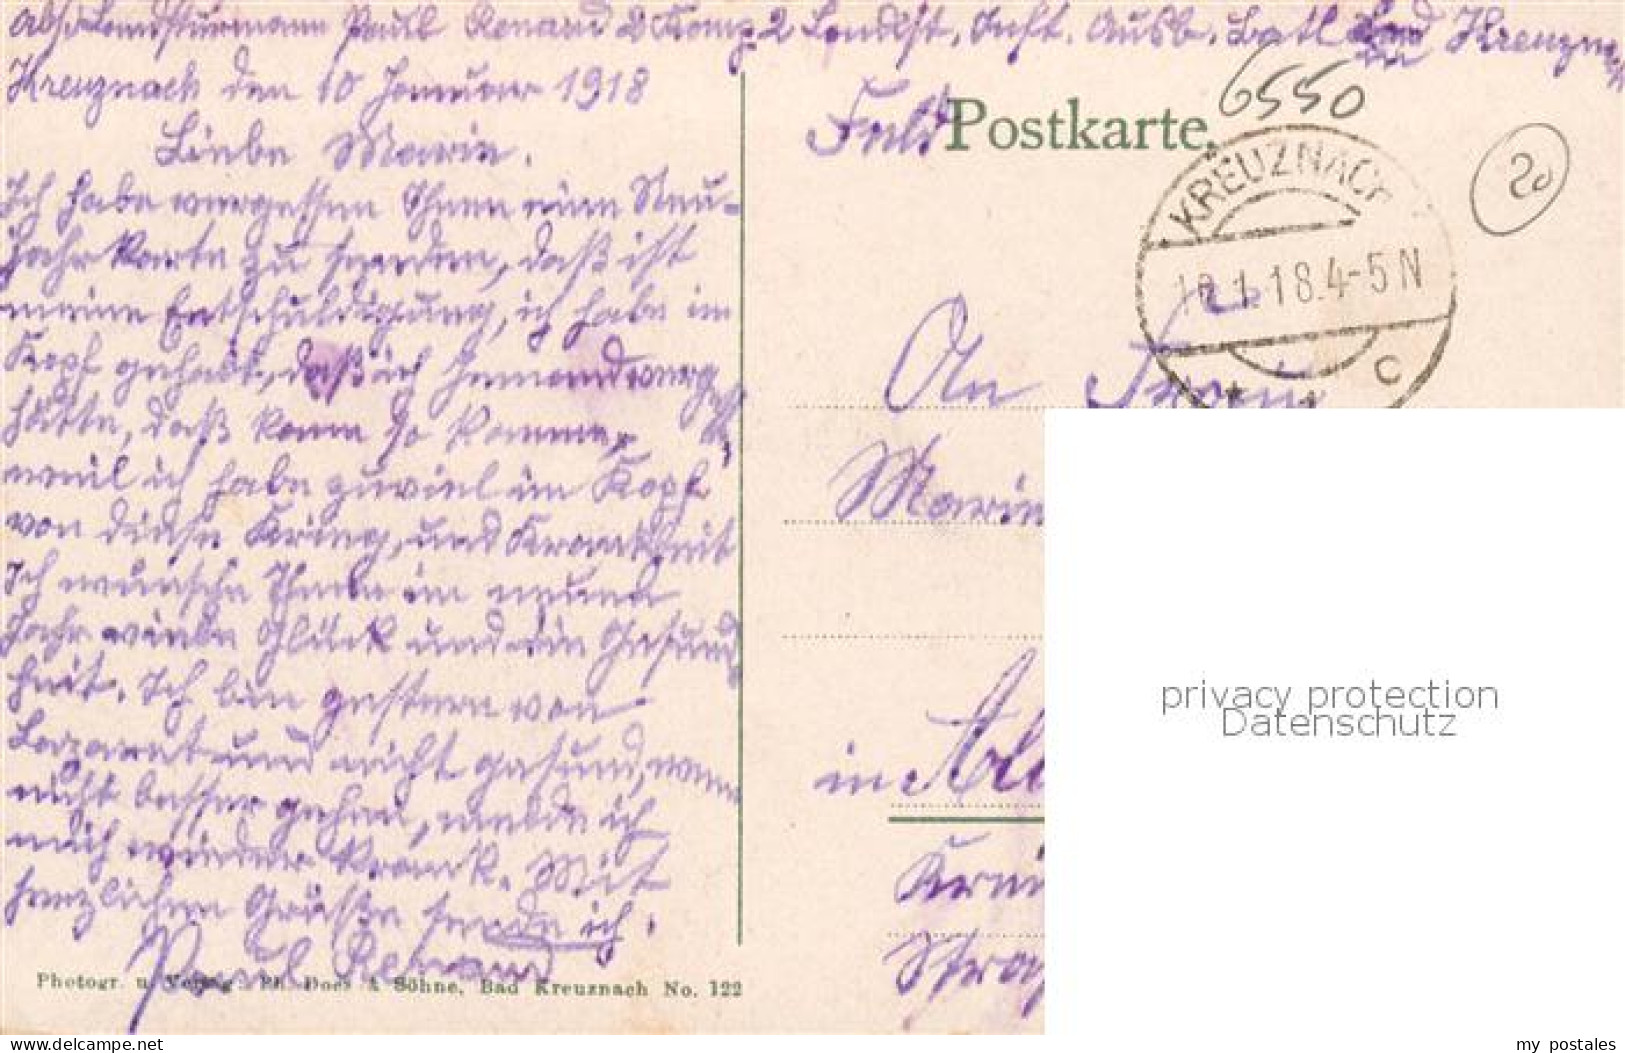 Abs. Landsturmann Paul Renard 2 Komp. 2 Landst. Inft. Ausb. Batl Bad Kreuznach
in
Kreuznach den 10 Januar 1918
Liebe Marie.
Ich habe vergessen Ihnen eine Neu-
Jahr karte zu senden, daß ist
meine Entschuldigung, ich habe im
Kopf gehabt, daß ich Jemand verges
hätte, daß kann so kommen,
weil ich habe zuviel im Kopf
von diese Krieg, und Krankheit
Ich wünsche Ihnen im neuen
Jahr viele Glück und ein Gesund
heit. Ich bin gestern von
Lazaret und nicht gesund, wenn
nicht besser gehen, melde ich
mich wieder krank. Mit
herzlichen Grüße sende ich.
Paul Renard
Photogr. u. Verlag Ph. Does & Söhne, Bad Kreuznach No. 122
Feld Postkarte.
6550
20
KREUZNACH
1.18.4-5 N
* 1 c
An
Marie
in
privacy protection
Datenschutz
www.delcampe.net
my_postales